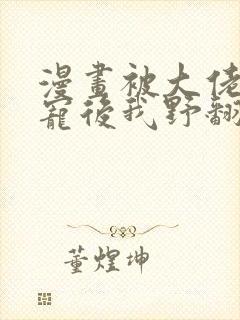 漫畫被大佬
寵後我野翻
董煌坤